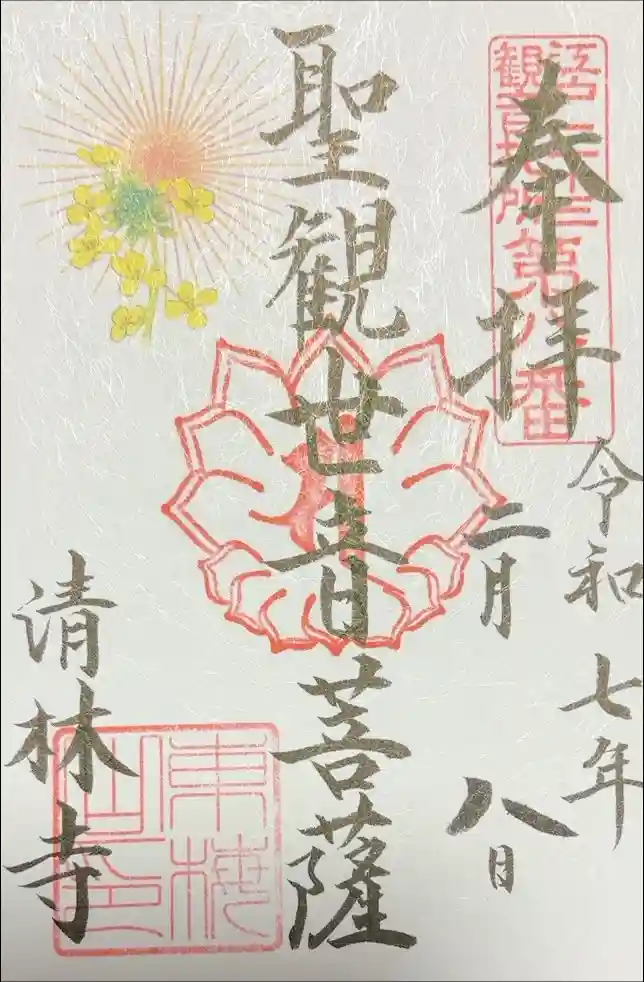 江戸三十三
観音札所
第八番
奉拝
令和七年
二月八日
聖観世音菩薩
清林寺
東梅
山印